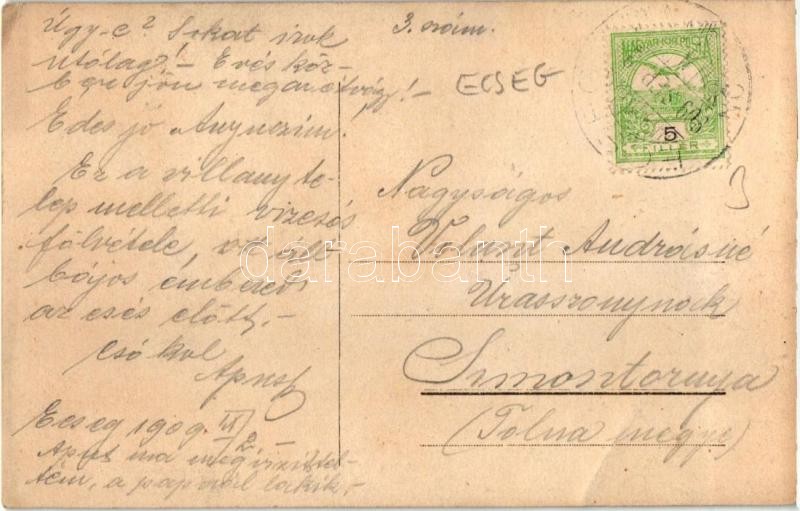 Úgy-e? Sokat írok
utólag! - Evés köz-
ben jön meg az étvágy! -
3. szám.
ECSEG
Édes jó Anyuszim!
Ez a villanyte-
lep melletti vizesés
fölvétele,
bájos emberei
az esés előtt. -
csókol
Apus
Ecseg 1909. III
2
Apus ma megérkezett
a pappal lakik. -
MAGYAR KIR. POSTA
5
FILLÉR
3
Nagyságos
Tolunt Andrásné
Úrasszonynak
Simontornya
(Tolna megye)
darabanth.com